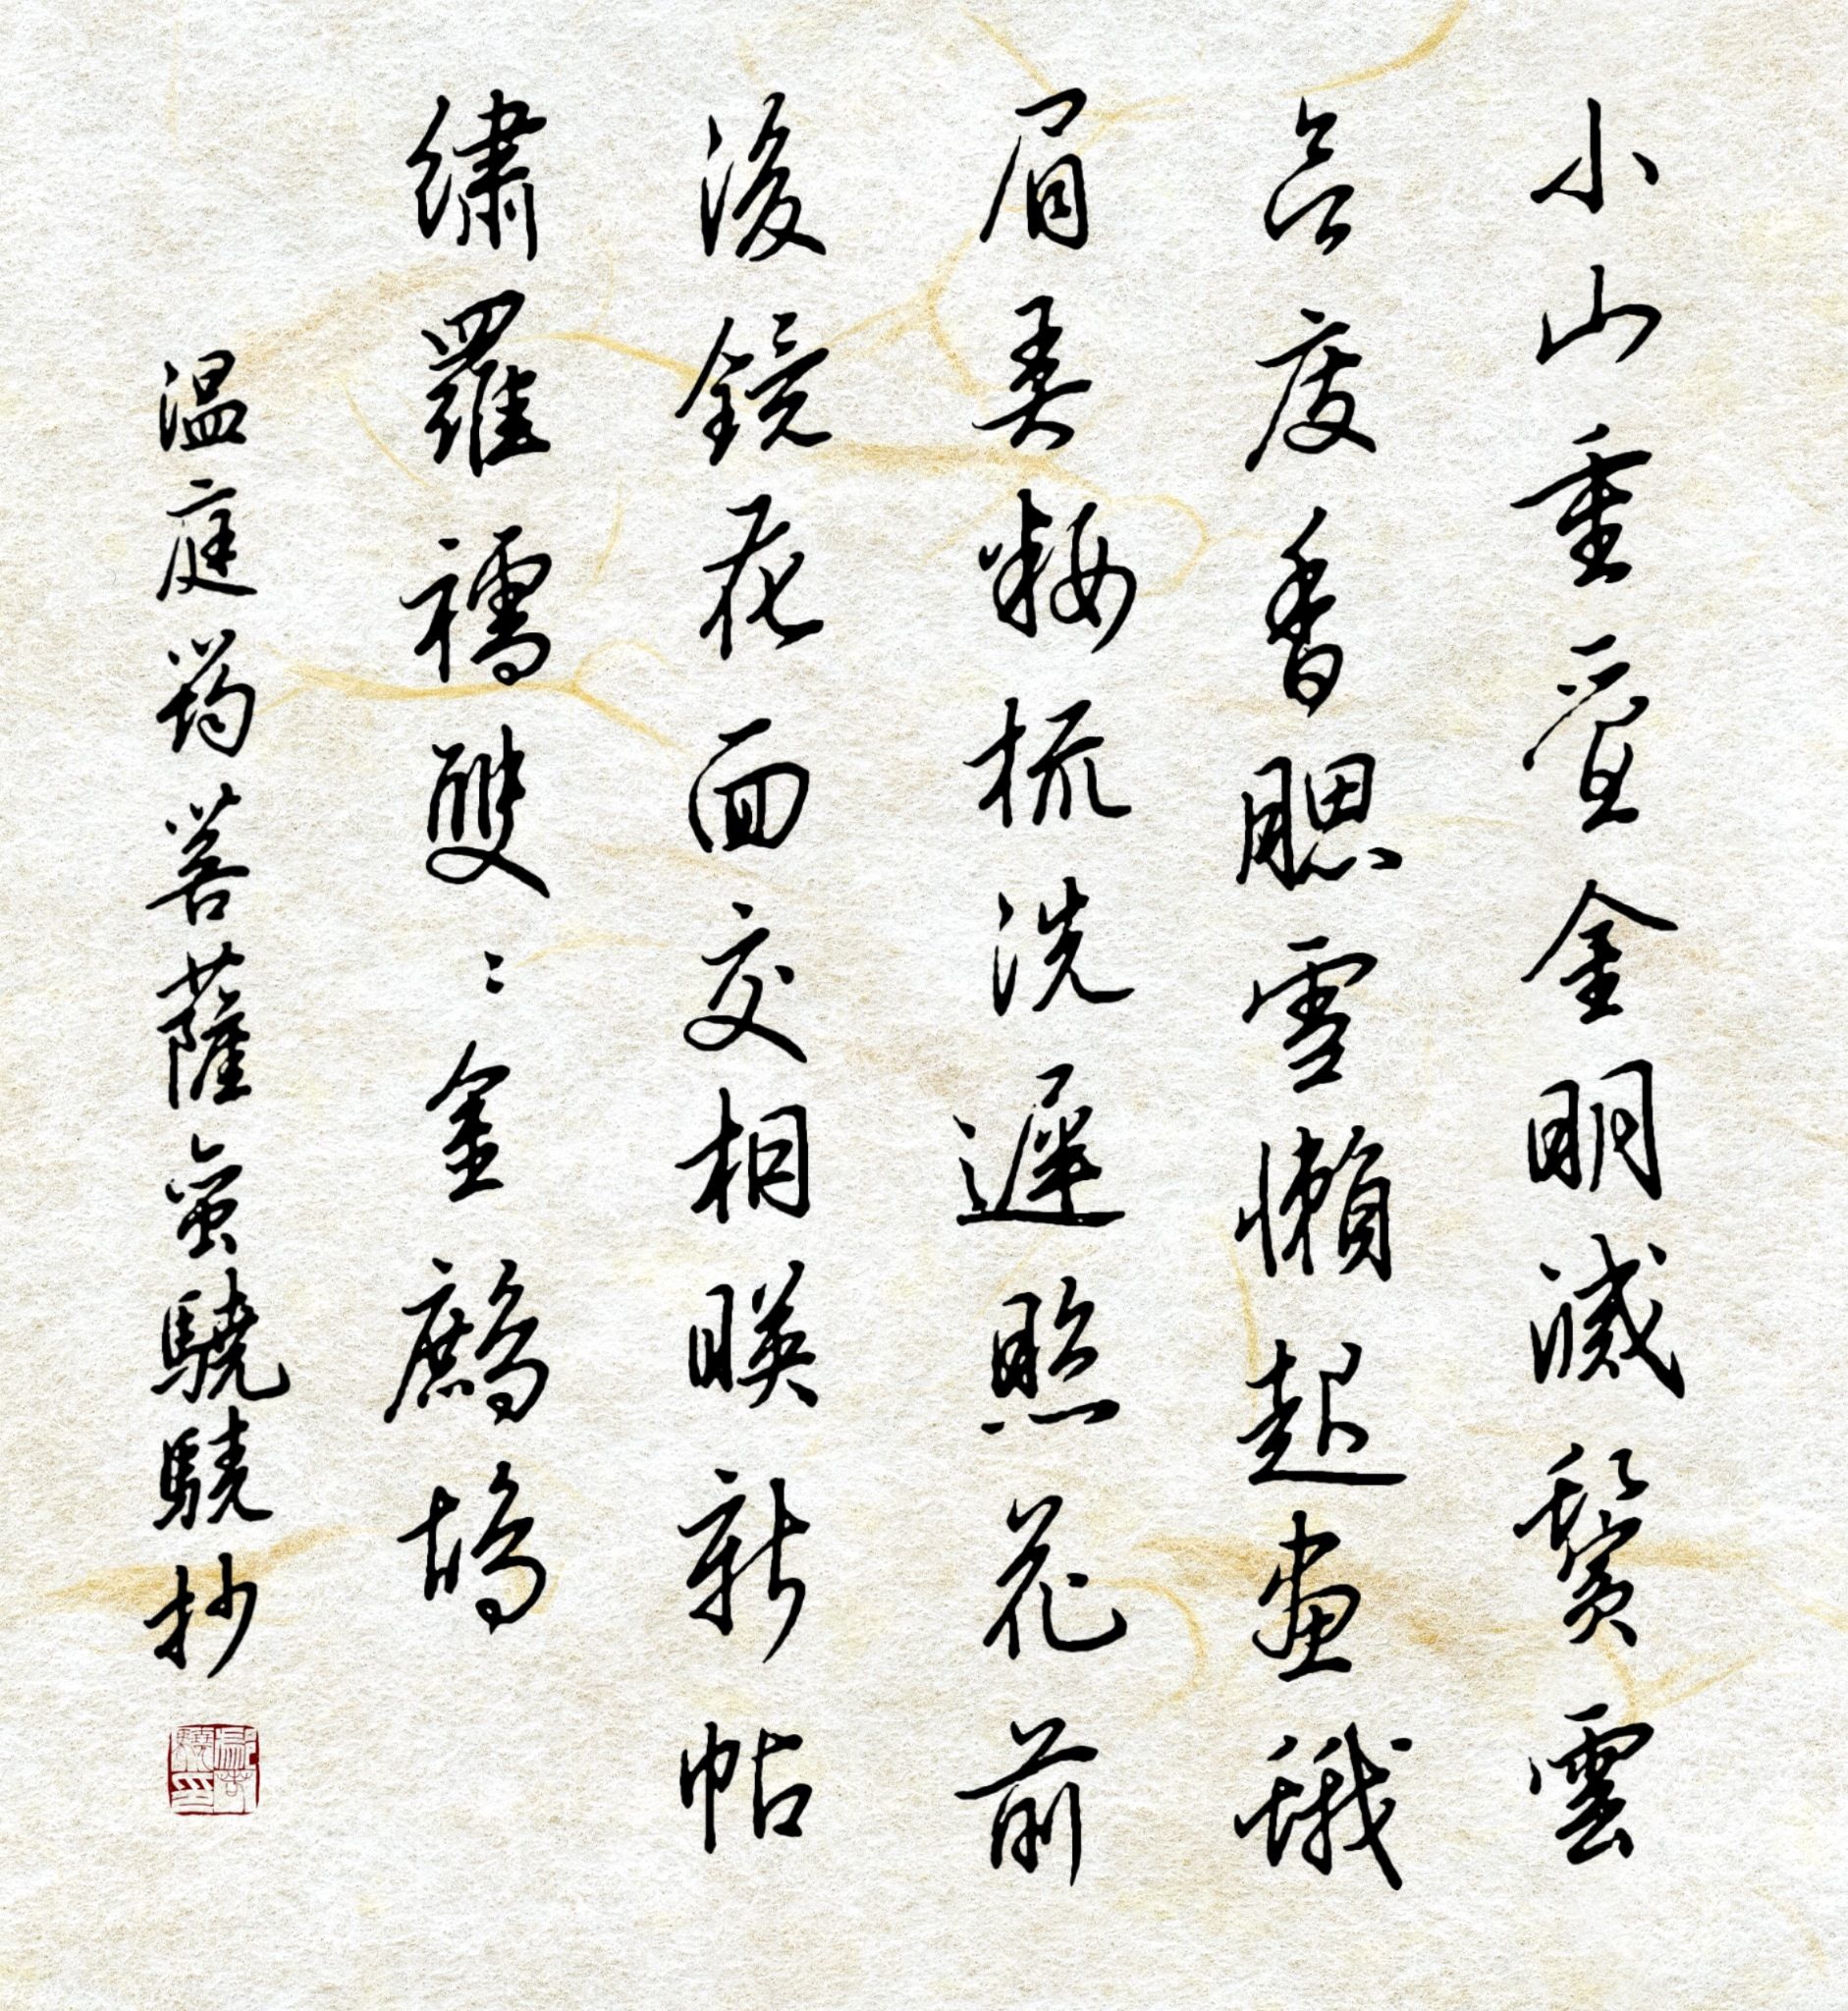 小山重疊金明滅鬢雲
欲度香腮雪懶起畫蛾
眉弄粧梳洗遲照花前
後鏡花面交相暎新帖
繡羅襦雙〻金鷓鴣
温庭筠菩薩蛮驍驍抄